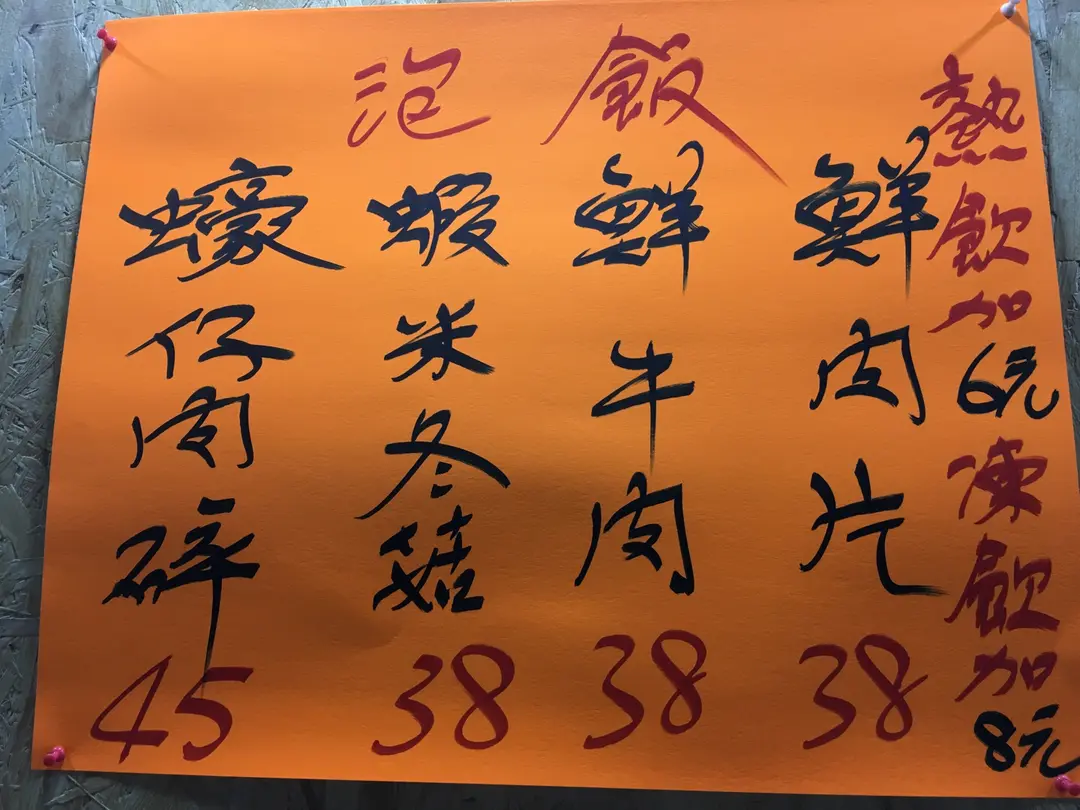 泡飯
熱飲加6元凍飲加8元
鮮肉片 38
鮮牛肉 38
蝦米冬菇 38
蠔仔肉碎 45